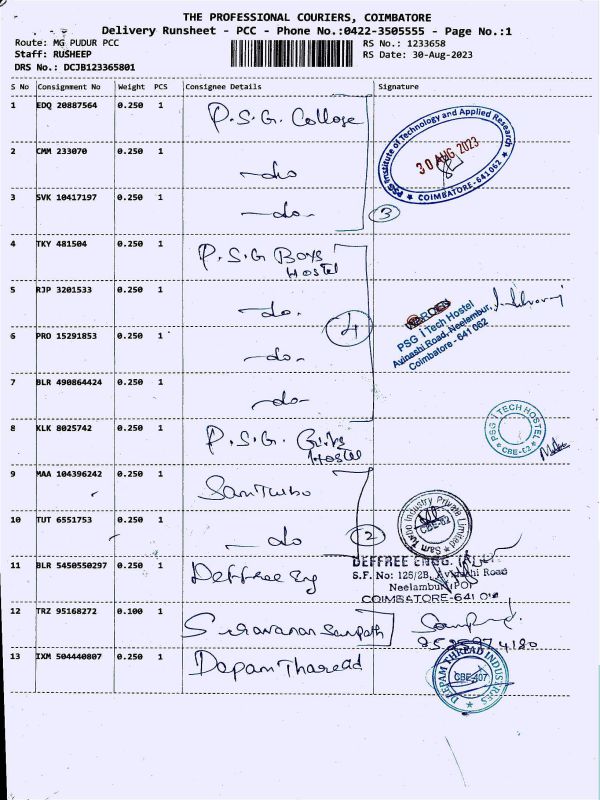 THE PROFESSIONAL COURIERS, COIMBATORE
Delivery Runsheet - PCC - Phone No.:0422-3505555 - Page No.:1
Route: MG PUDUR PCC
RS No.: 1233658
Staff: RUSHEEP
RS Date: 30-Aug-2023
DRS No.: DCJB123365801
S No Consignment No Weight PCS Consignee Details Signature
1 EDQ 20887564 0.250 1 P.S.G. College
PSG Institute of Technology and Applied Research
30 AUG 2023
★ COIMBATORE-641062 ★
2 CMM 233070 0.250 1 -do
3 SVK 10417197 0.250 1 -do-
3
4 TKY 481504 0.250 1 P.S.G Boys
Hostel
5 RJP 3201533 0.250 1 -do.
4
WARDEN
PSG i Tech Hostel
Avinashi Road, Neelambur,
Coimbatore - 641 062
6 PRO 15291853 0.250 1 -do-
7 BLR 490864424 0.250 1 -do-
8 KLK 8025742 0.250 1 P.S.G. Girls
Hostel
PSG i TECH HOSTEL
★ CBE-62 ★
9 MAA 104396242 0.250 1 Sam Turbo
10 TUT 6551753 0.250 1 - do
2
Sam Turbo Industry Private Limited ★
CBE-62
11 BLR 5450550297 0.250 1 Deffree Eng
DEFFREE ENGG.
S.F. No: 125/2B, Avinashi Road
Neelambur (PO)
COIMBATORE-641 014
12 TRZ 95168272 0.100 1 Saravanan Sampath
13 IXM 504440807 0.250 1 Depam Tharead
DEEPAM THREAD INDUSTRIES
CBE-407
★